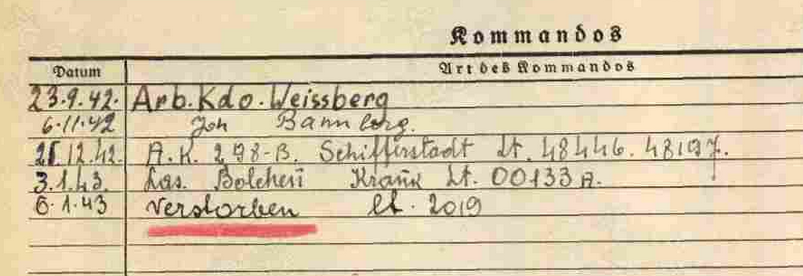 Kommandos
Datum Art des Kommandos
23.9.42. Arb.Kdo.Weissberg
6.11.42 Joh
21.12.42. A.K. 298-B. Schifferstadt lt. 48446. 48197.
3.1.43. Las. Bolchen Krank lt. 00133 A.
6.1.43 verstorben lt. 2019